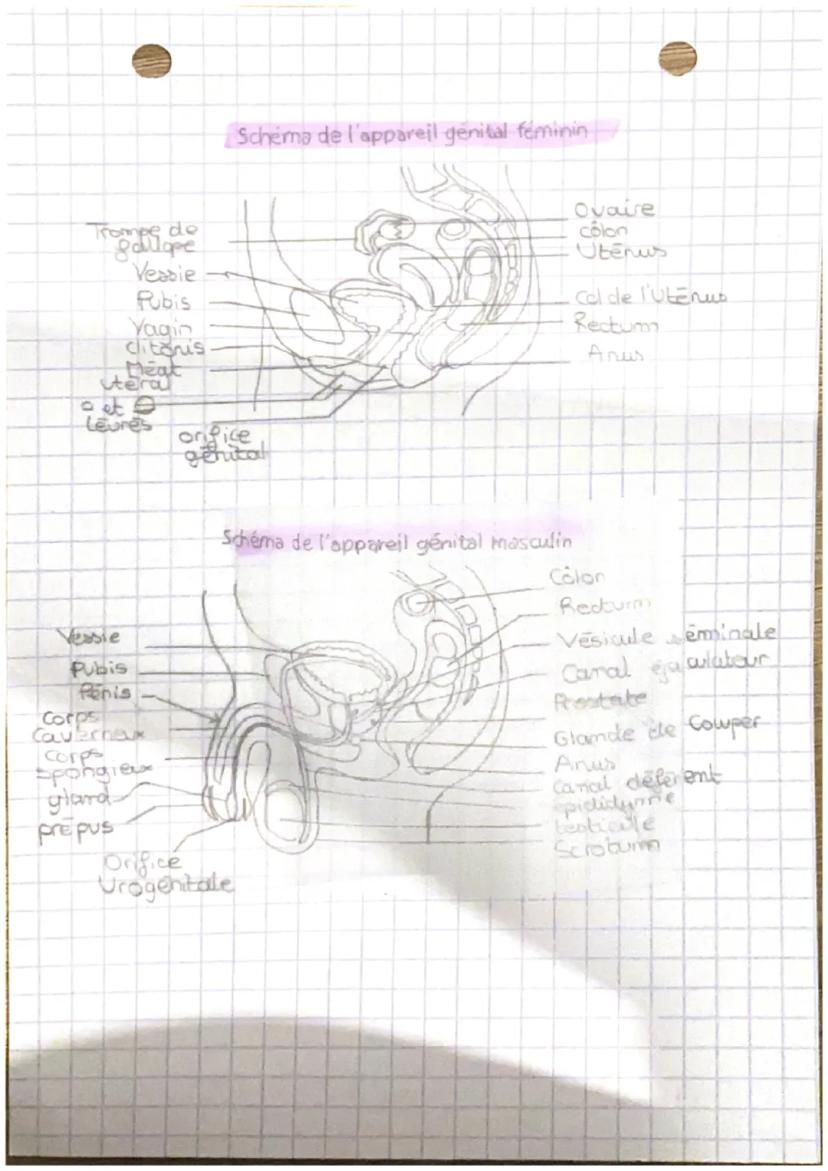 Schéma de l'appareil génital féminin
Trompe de
Vessie
Pubis
Vagin
clitoris
Méat
utéral
et
Lèvres
orifice
génital
Ovaire
côlon
Utérus
Col de l'Utérus
Rectum
Anus
Schéma de l'appareil génital masculin
Vessie
Pubis
Pénis
corps
caverneux
corps
spongieux
gland
prépus
Orifice
Urogénitale
Côlon
Rectum
Vésicule séminale
Canal éjaculateur
Prostate
Glande de Cowper
Anus
Canal déférent
épididyme
testicule
Scrotum